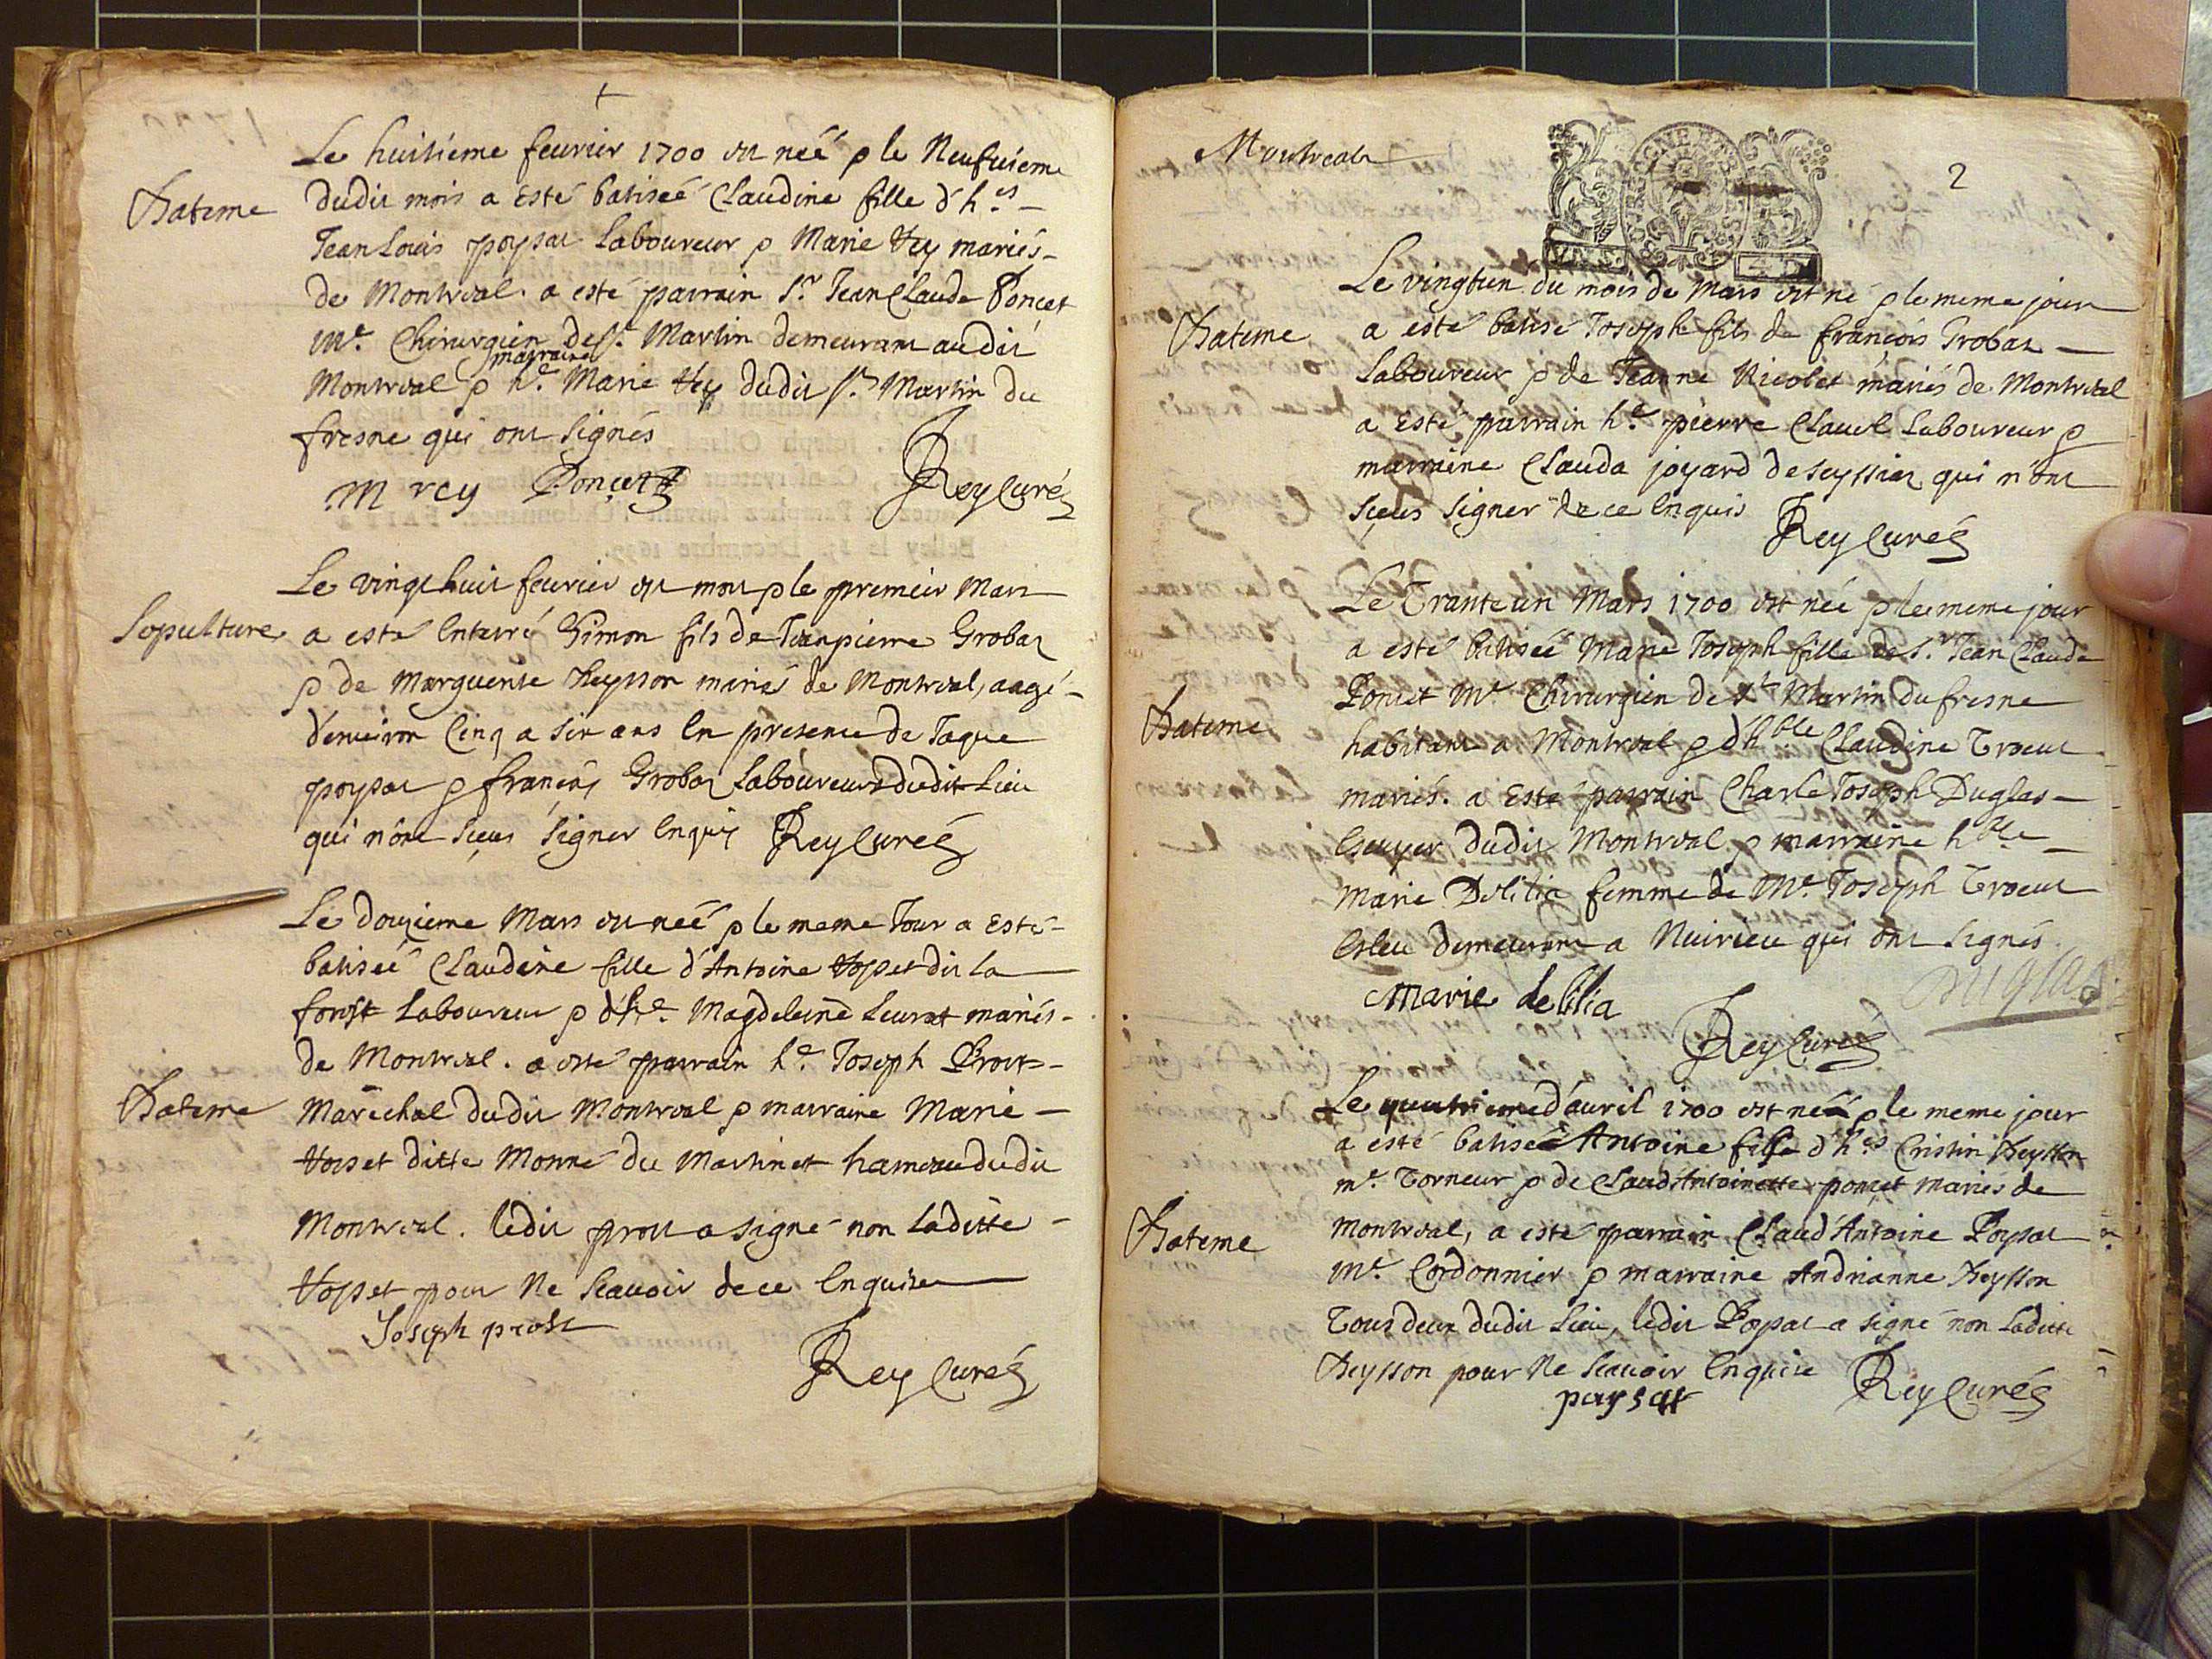 Le huitieme feurier 1700 est neé & le Neufuieme
Bateme dudit mois a esté batiseé Claudine fille d'h.es
Jean Louis poysat Laboureur & Marie Rey mariés
de Montreal. a esté parrain S.r Jean Claude Poncet
M.e Chirurgien de S.t Martin demeurant audit
marraine
Montreal & h.e Marie Rey dudit S.t Martin du
fresne qui ont signés
m rey Poncet Rey Curé
Le vingt huit feurier est mort & le premeir Mars
Sepulture a esté Enterré Simon fils de Jean pierre Grobaz
& de Marguerite Reysson mariés de Montreal, aagé
d'enuiron Cinq a six ans En presence de Jaque
poysat & françois Grobaz Laboureurs dudit Lieu
qui n'ont sceus signer Enquis Rey Curé
Le douzieme Mars est neé & le meme Jour a Esté
batiseé Claudine fille d'Antoine dit la
forest Laboureur & d'h.e Magdeleine mariés
de Montreal. a esté parrain h.e Joseph Prost
Bateme Marechal dudit Montreal & marraine Marie
ditte Monne du Martinet hameau dudit
Montreal. ledit prost a signé non laditte
pour Ne Scauoir de ce Enquise
Joseph prost
Rey Curé
Montreal
2
Le vingtun du mois de Mars est né & le meme jour
Bateme a esté batisé Joseph fils de françois Grobaz
Laboureur & de Jeanne Nicolet mariés de Montreal
a Esté parrain h.e pierre Laboureur &
marraine Clauda joyard de qui n'ont
sceus signer de ce Enquis
Rey Curé
Le Trante un Mars 1700 est neé & le meme jour
a esté batiseé Marie Joseph fille de S.r Jean Claude
Poncet M.e Chirurgien de S.t Martin du fresne
Bateme habitant a Montreal & d'h.ble Claudine Trocut
mariés. a Esté parrain Charle Joseph Duglas
Escuyer dudit Montreal & marraine h.ble
Marie Delilia femme de M.e Joseph Trocut
Esleu demeurant a Nuirieu qui ont signés
Marie delilia Duglas
Rey Curé
Le quatrieme d'auril 1700 est né & le meme jour
a esté batisé Antoine fils d'h.es Cristin Reysson
m.e Torneur & de Claud'Antoinette poncet mariés de
Bateme Montreal, a esté parrain Claud'Antoine Poysat
M.e Cordonnier & marraine Andrianne Reysson
Tous deux dudit Lieu, ledit Poysat a signé non laditte
Reysson pour Ne Scauoir Enquise Rey Curé
paysat